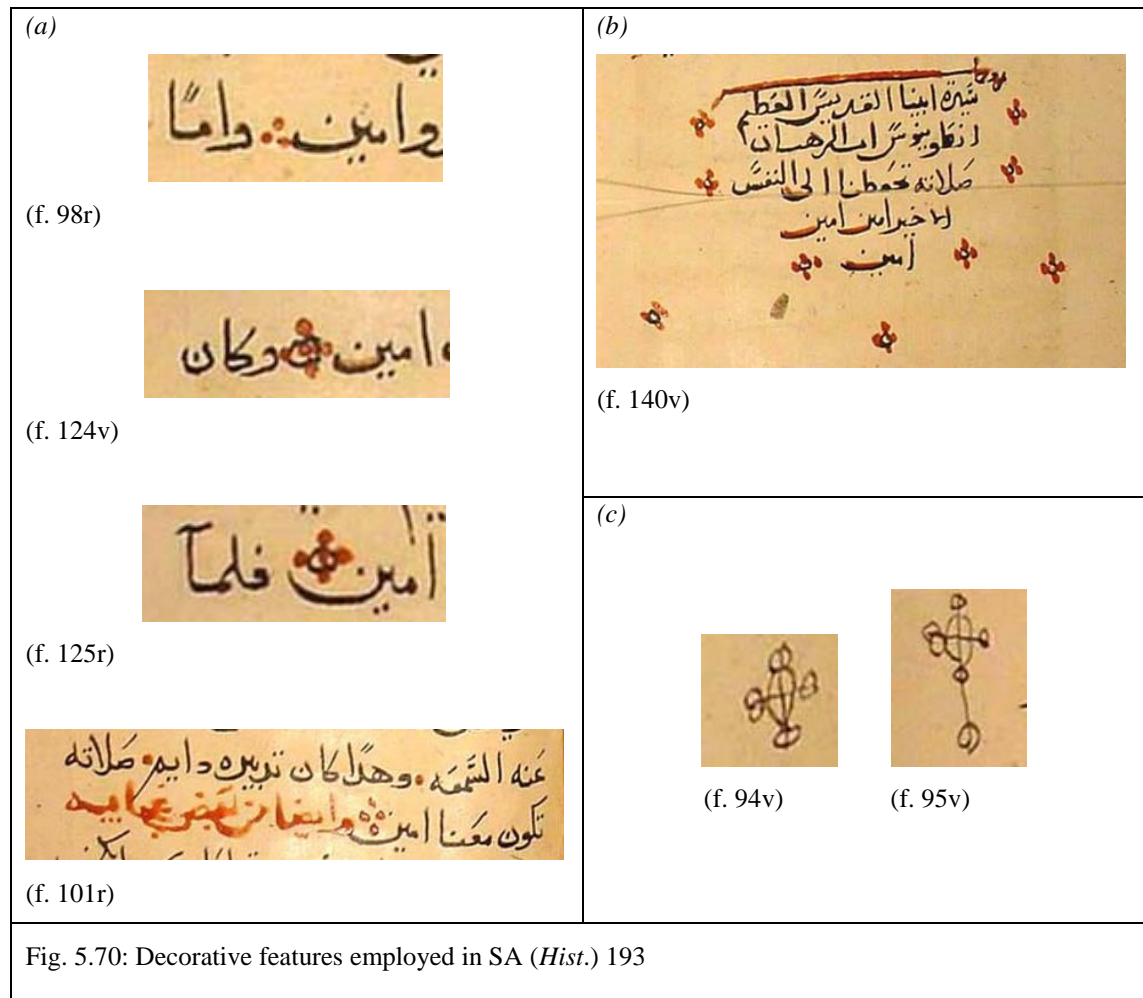 (a)
وامين وامًا
(f. 98r)
امين وكان
(f. 124v)
امين فلمآ
(f. 125r)
عنه السَّمعَه وهدا كان تدبيره دايم صَلاته
تكون معَنا امين وايضا من بعض
(f. 101r)
(b)
سَيرة ابينا القديسَ العَظيم
اب الرهبان
صَلاته تحفظنا الى النفسَ
الاخير امين امين
امين
(f. 140v)
(c)
(f. 94v)
(f. 95v)
Fig. 5.70: Decorative features employed in SA (Hist.) 193